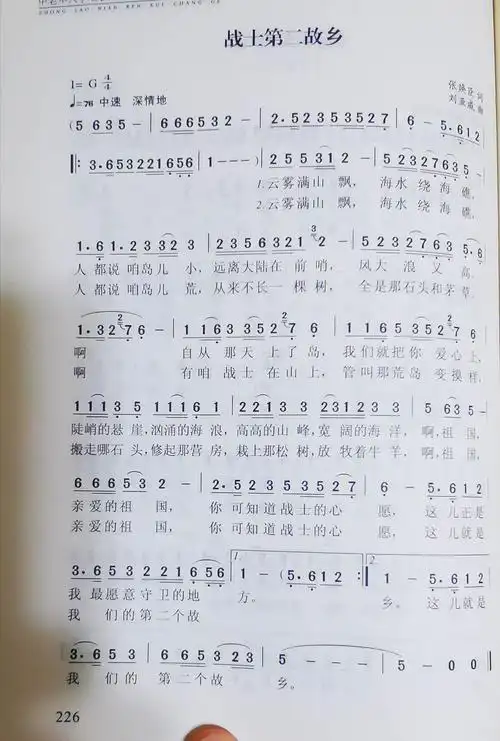 ZHONG LAO NIAN REN XUE CHANG GE
战士第二故乡
1=G 4/4
♩=76 中速 深情地
张焕臣 词
刘亚威 曲
(5 6 3 5 - | 6 6 6 5 3 2 - | 2· 5 2 3 5 3 5 2 7 | 6 - 5· 6 1 2
‖: 3· 6 5 3 2 2 1 6 5 6 | 1 - - -) | 2 5 5 3 1 2 - | 5 2 3 2 7 6 3 5 -
1.云雾满山飘, 海水绕海礁,
2.云雾满山飘, 海水绕海礁,
1· 6 1· 2 3 3 2 3 | 2 3 5 6 3 2 1 2 - | 5 2 3 5 2 7 6 3 5· 6
人都说咱岛儿小,远离大陆在前哨, 风大浪又高.
人都说咱岛儿荒,从来不长一棵树, 全是那石头和茅草.
1· 3 2 7 6 - | 1 1 6 3 3 5 2 - | 1 1 6 3 5 2 7 6 -
啊 自从那天上了岛,我们就把你爱心上,
啊 有咱战士在山上,管叫那荒岛变摸样,
1 1 1 3 5 | 1 1 1 6 5 6 1 | 2 2 2 1 3 3 | 2 2 1 2 3 5 | 6 5 3 5 -
陡峭的悬崖,汹涌的海浪,高高的山峰,宽阔的海洋,啊,祖国,
搬走哪石头,修起那营房,栽上那松树,放牧着牛羊,啊,祖国,
6 6 6 5 3 2 - | 2· 5 2 3 5 3 5 2 7 | 6 - 5· 6 1 2
亲爱的祖国, 你可知道战士的心愿, 这儿正是
亲爱的祖国, 你可知道战士的心愿, 这儿就是
3· 6 5 3 2 2 1 6 5 6 | 1. 1 - (5· 6 1 2 :‖ 2. 1 - 5· 6 1 2
我最愿意守卫的地方。 乡。 这儿就是
我们的第二个故
3· 6 6 5 - | 3· 6 6 5 3 2 3 | 5 - - - | 5 - 0 0 |
我们的第二个故乡。
226